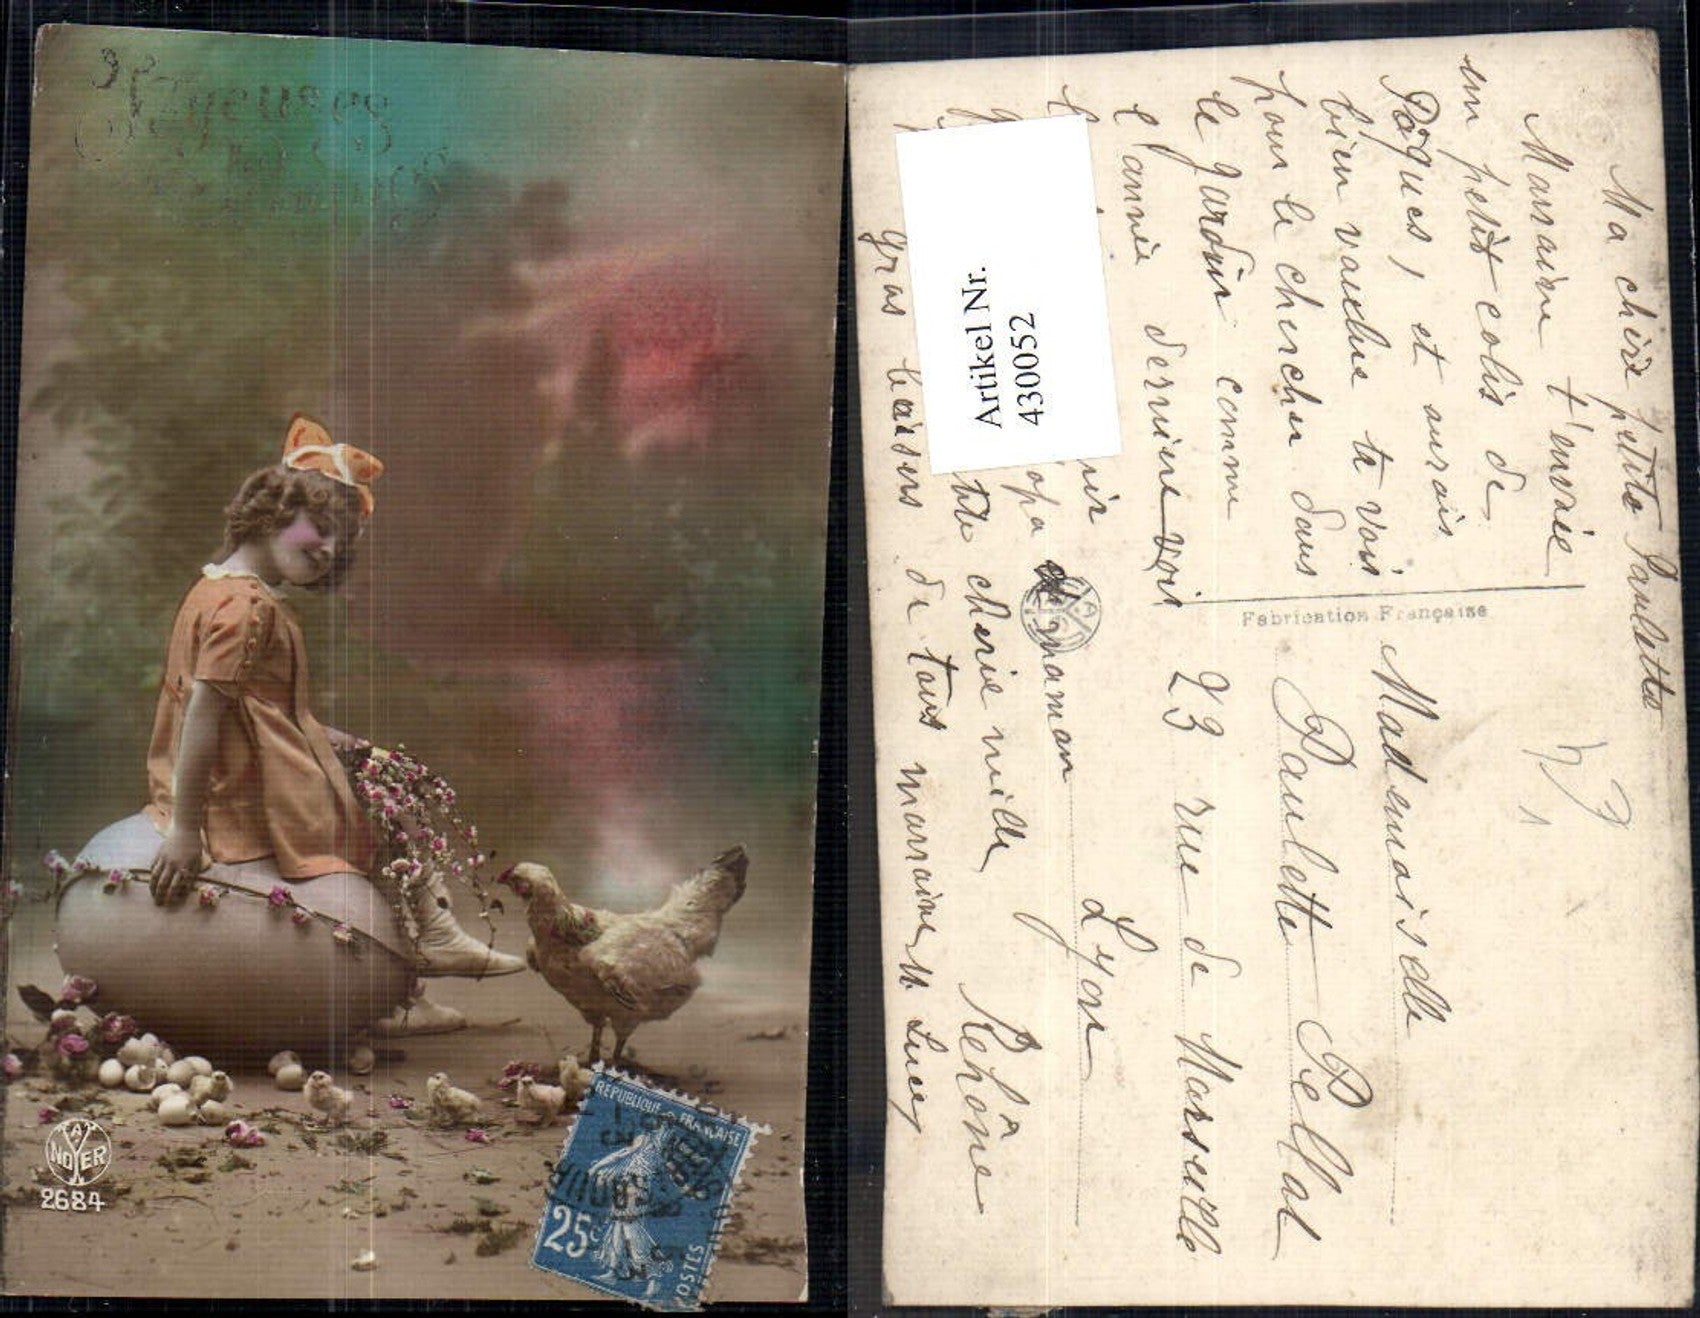 Joyeuses
Pâques
A
NOYER
2684
REPUBLIQUE FRANÇAISE
25c
POSTES
Ma chère petite Paulette
Marraine t'envoie
un petit colis de
Pâques, et aurais
bien voulue te voir
pour le chercher dans
le jardin comme
l'année dernière voir
maman
cherie mille
gros baisers de tous marraine Lucy
Artikel Nr.
4300052
Fabrication Française
Mademoiselle
Paulette Pellal
23 rue de Marseille
Lyon
Rehône